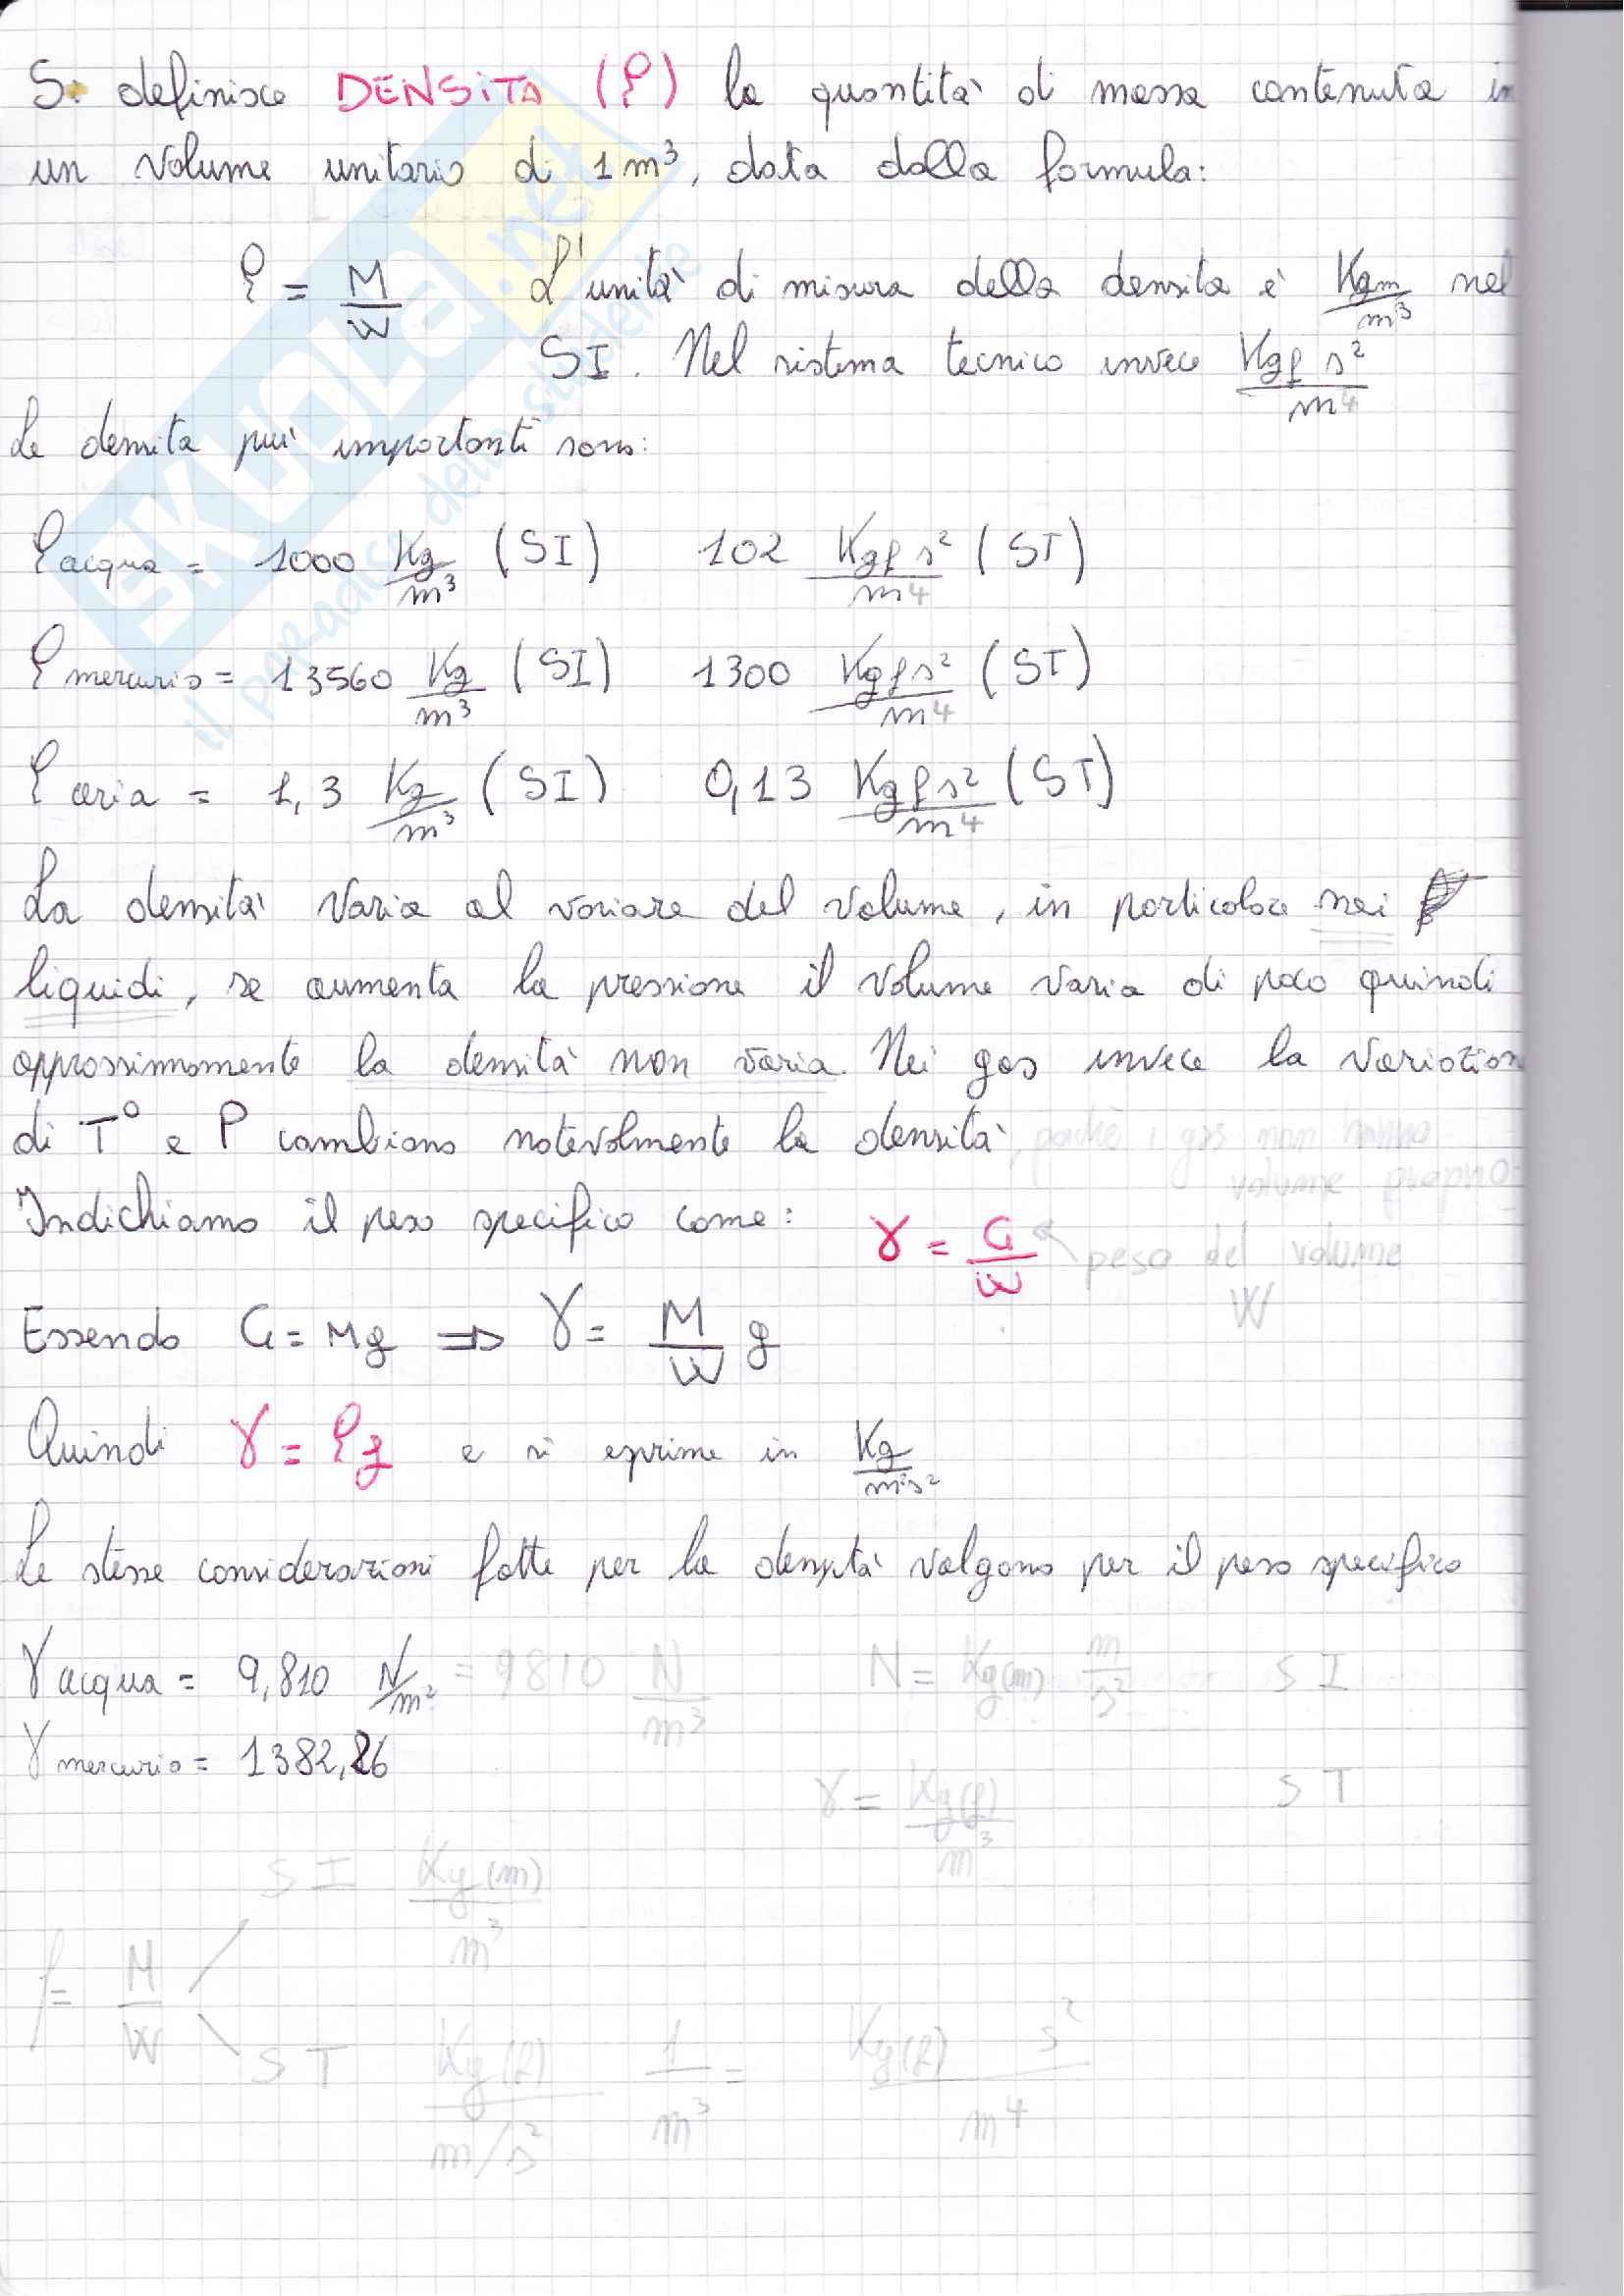 Si definisce DENSITÀ (ρ) la quantità di massa contenuta in
un volume unitario di 1 m³, data dalla formula:
ρ = M/W L'unità di misura della densita è Kgm/m³ nel
SI. Nel sistema tecnico invece Kgf s²/m⁴
Le densita più importanti sono:
ρ acqua = 1000 Kg/m³ (SI) 102 Kgf s²/m⁴ (ST)
ρ mercurio = 13560 Kg/m³ (SI) 1300 Kgf s²/m⁴ (ST)
ρ aria = 1,3 Kg/m³ (SI) 0,13 Kgf s²/m⁴ (ST)
La densità varia al variare del volume, in particolare nei
liquidi, se aumenta la pressione il volume varia di poco quindi
approssimomente la densità non varia. Nei gas invece la variazion
di T° e P cambiano notevolmente la densità, poichè i gas non hanno
volume proprio
Indichiamo il peso specifico come: γ = G/W peso del volume
W
Essendo G = Mg ⇒ γ = M/W g
Quindi γ = ρg e si esprime in Kg/m²s²
Le stesse considerazioni fatte per la densità valgono per il peso specifico
γ acqua = 9,810 N/m² = 9810 N/m³ N = Kg(m) m/s² SI
γ mercurio = 1382,86
γ = Kg(f)/m³ ST
SI Kg(m)/m³
ρ = M/W
ST Kg(f)/m/s² 1/m³ = Kg(f) s²/m⁴
SKUOLA.net
il paradiso dello studente